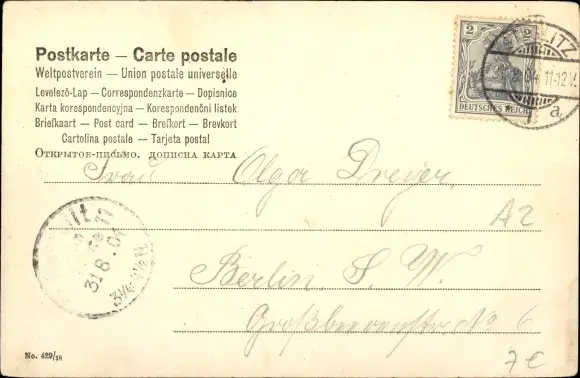 Postkarte — Carte postale
Weltpostverein — Union postale universelle
Levelező-Lap — Correspondenzkarte — Dopisnice
Karta korespondencyjna — Korespondenční lístek
Briefkaart — Post card — Brefkort — Brevkort
Cartolina postale — Tarjeta postal
Открытое-письмо. дописна карта
2 2
DEUTSCHES REICH
LITZ
04. 11-12V.
a.
Frau Olga Dreyer,
A2
Berlin. S. W.
Großbeerenstr. No 6
31.8.04
No. 429/18
7€